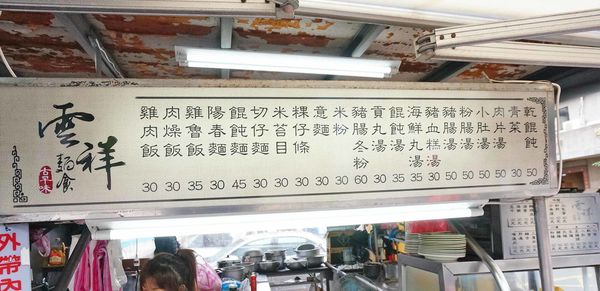 雲祥
麵食
古早味
雞肉飯 30
肉燥飯 30
雞魯飯 35
陽春麵 30
餛飩麵 45
切仔麵 30
米苔目 30
粿仔條 30
意麵 30
米粉 30
豬腸冬粉 60
貢丸湯 30
餛飩湯 35
海鮮丸湯 35
豬血糕湯 30
豬腸湯 50
粉腸湯 50
小肚湯 50
肉片湯 50
青菜 30
乾餛飩 50
外帶內